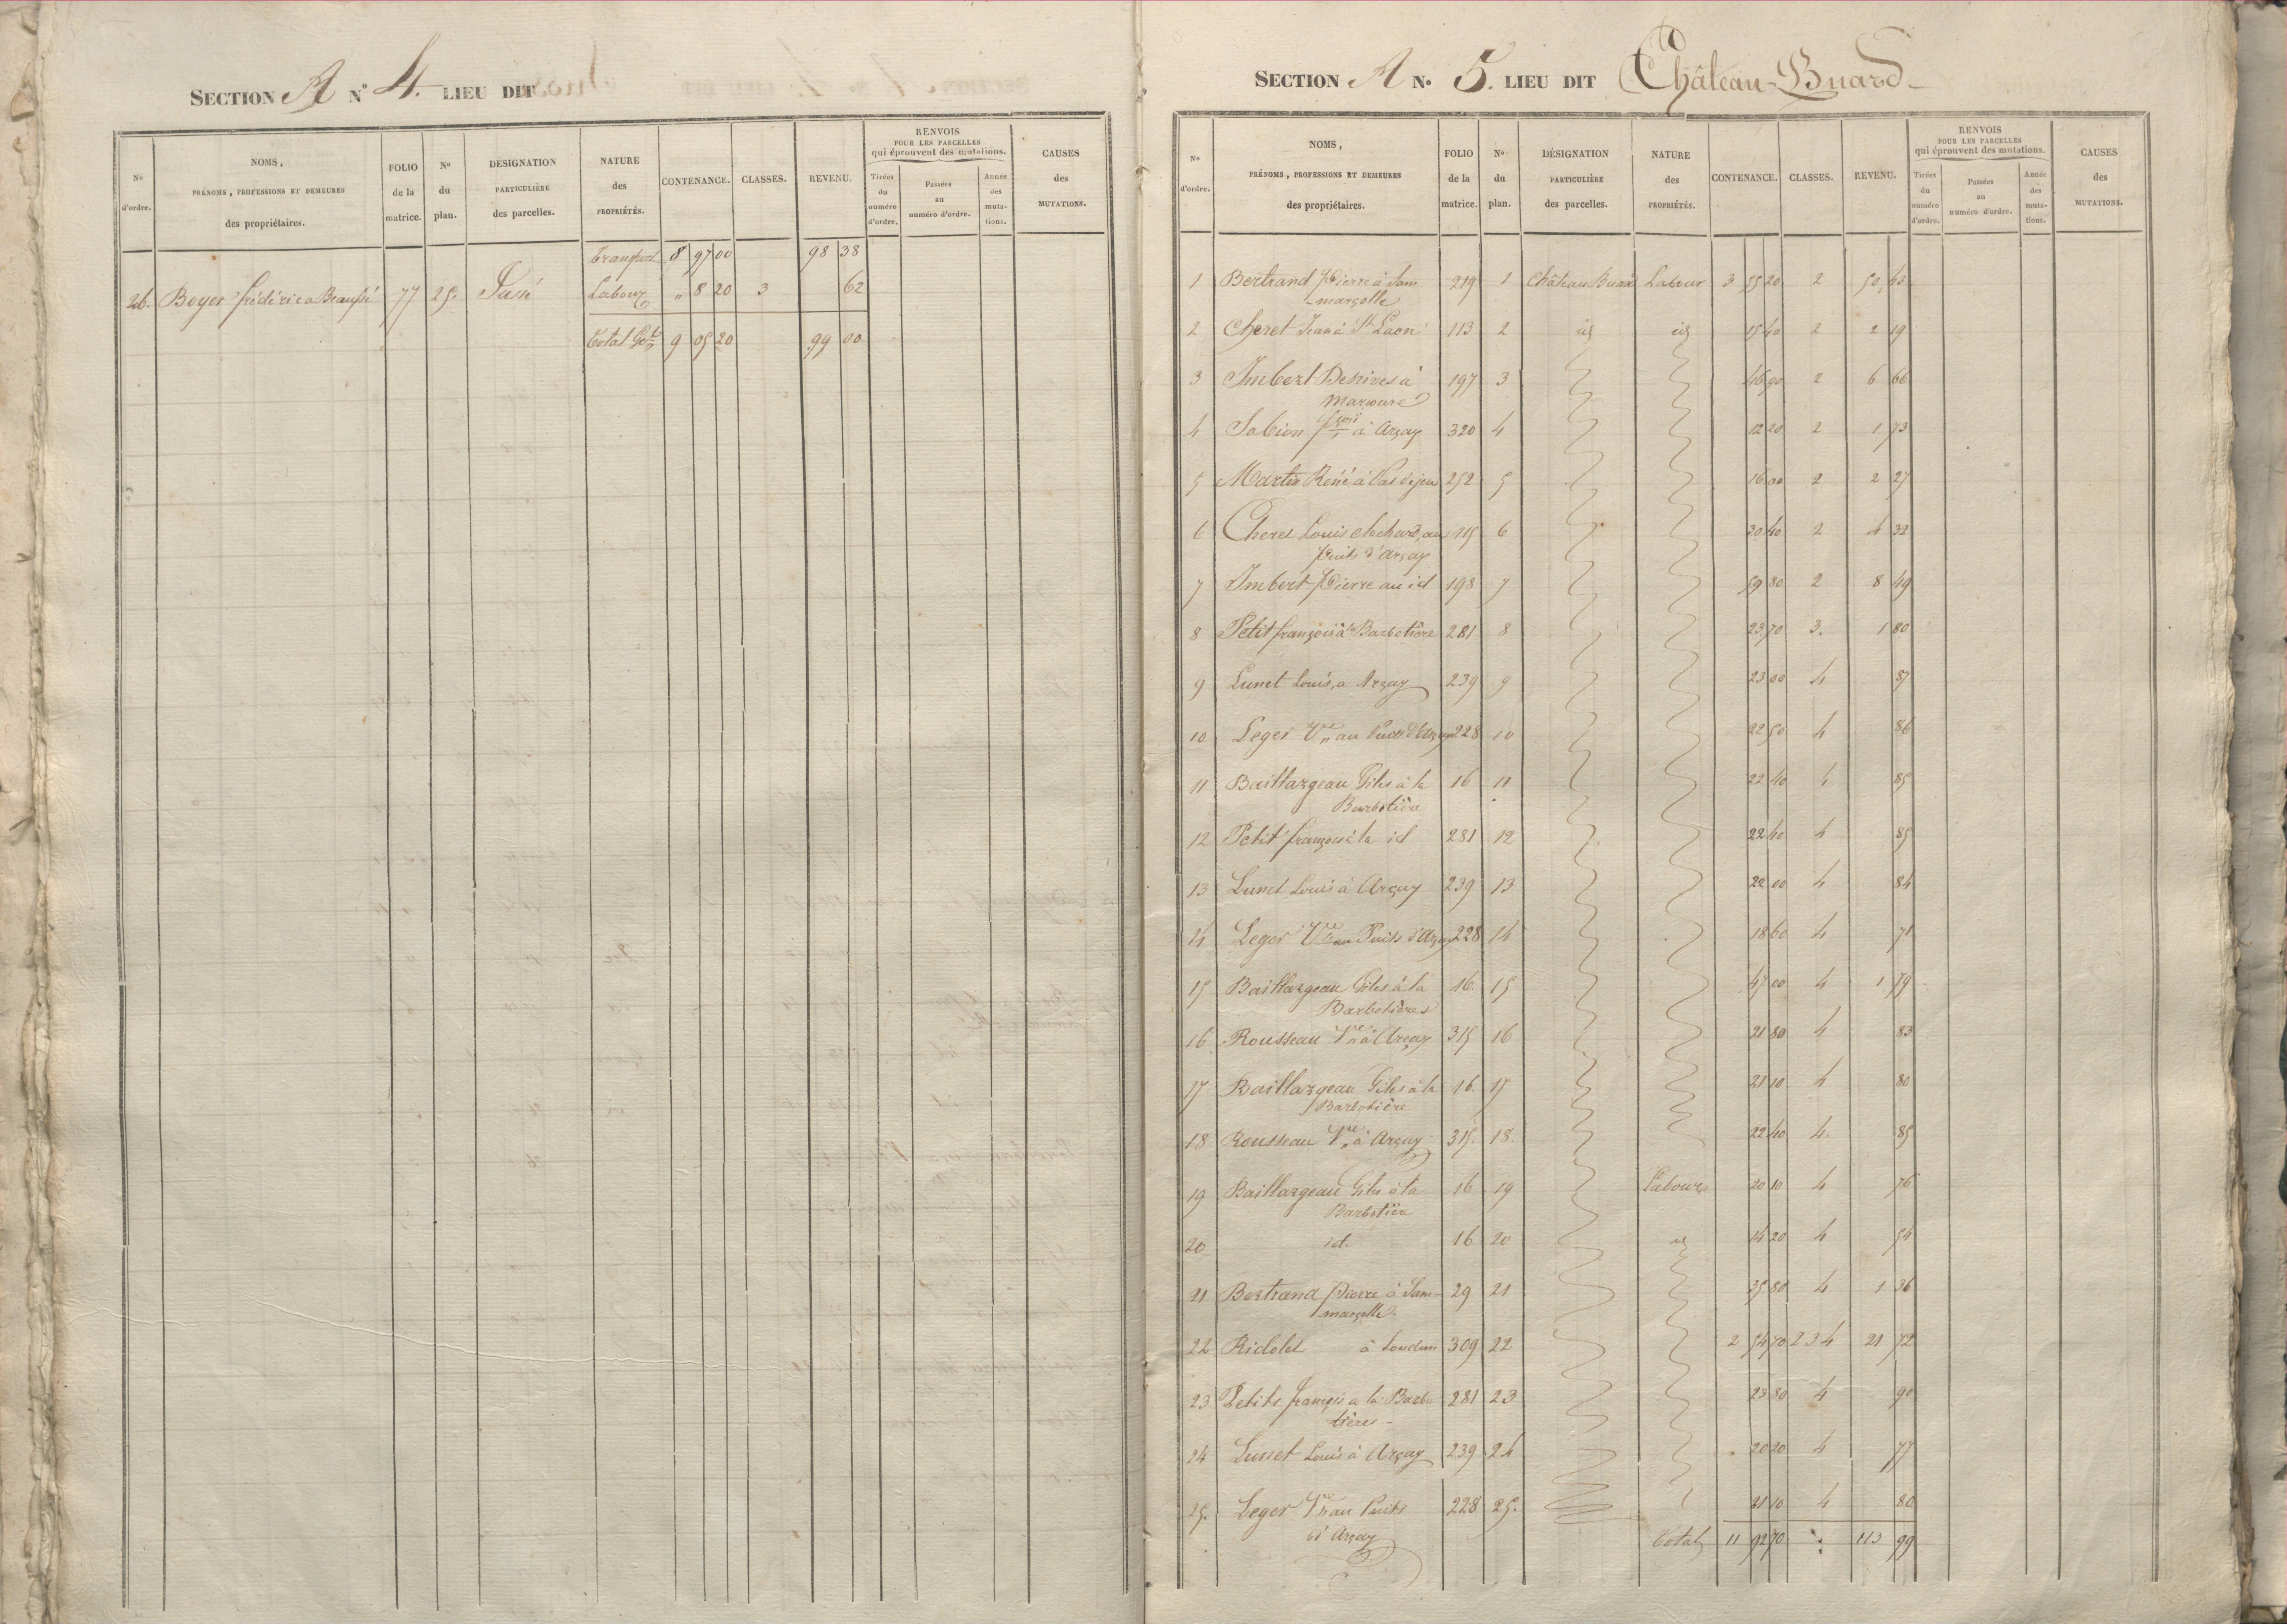 SECTION A N° 4. LIEU DIT
N° d'ordre. NOMS, PRÉNOMS, PROFESSIONS ET DEMEURES des propriétaires. FOLIO de la matrice. N° du plan. DESIGNATION PARTICULIÈRE des parcelles. NATURE des PROPRIÉTÉS. CONTENANCE. CLASSES. REVENU. RENVOIS POUR LES PARCELLES qui éprouvent des mutations. Tirées du numéro d'ordre. Passées au numéro d'ordre. Année des mutations. CAUSES des MUTATIONS.
Transport 8 97 00 98 38
26. Boyer frédéric a Beaussé 77 25. Sassé Labour " 8 20 3 62
Total 9 05 20 99 00
SECTION A N° 5. LIEU DIT Château-Buard
N° d'ordre. NOMS, PRÉNOMS, PROFESSIONS ET DEMEURES des propriétaires. FOLIO de la matrice. N° du plan. DÉSIGNATION PARTICULIÈRE des parcelles. NATURE des PROPRIÉTÉS. CONTENANCE. CLASSES. REVENU. RENVOIS POUR LES PARCELLES qui éprouvent des mutations. Tirées du numéro d'ordre. Passées au numéro d'ordre. Année des mutations. CAUSES des MUTATIONS.
1 Bertrand Pierre à Sam 219 1 Château Buard Labour 3 55 20 2 50 43
marçolle
2 Cheret Jean à St Laon 113 2 id id 15 40 2 2 19
3 Imbert Desrives à 197 3 46 90 2 6 66
4 Sabion fçois à Arçay 320 4 12 20 2 1 73
5 Martin René à Pas de jeu 252 5 16 00 2 2 27
6 Cheret Louis au 115 6 30 40 2 4 32
Puits d'arçay
7 Imbert Pierre au id 198 7 59 80 2 8 49
8 Petit françois à la Barbotière 281 8 23 70 3. 1 80
9 Lunet Louis, a Arçay 239 9 23 00 4 87
10 Leger Ve au Puits d'Arçay 228 10 22 50 4 86
11 Baillargeau Giles à la 16 11 22 40 4 85
Barbotière
12 Petit françois à la id 281 12 22 40 4 85
13 Lunet Louis à Arçay 239 13 22 00 4 84
14 Leger Ve au Puits d'Arçay 228 14 18 60 4 71
15 Baillargeau Giles à la 16. 15 47 00 4 1 79
Barbotières
16 Rousseau Ve à Arçay 315 16 21 80 4 83
17 Baillargeau Giles à la 16 17 21 10 4 80
Barbotière
18 Rousseau Ve à Arçay 315. 18. 22 40 4. 85
19 Baillargeau Giles à la 16 19 Labour 20 10 4 76
Barbotière
20 id. 16 20 id 14 20 4 54
21 Bertrand Pierre à Sam- 29 21 35 80 4 1 36
marçolle.
22 Ridolet à Loudun 309 22 2 54 70 2 3 4 21 72
23 Petits françois a la Barbo 281 23 23 80 4 90
tières-
24 Lunet Louis à Arçay 239 24 20 20 4 77
25. Leger Ve au Puits 228 25. 21 10 4 80
d'Arçay
Total 11 92 70 113 99